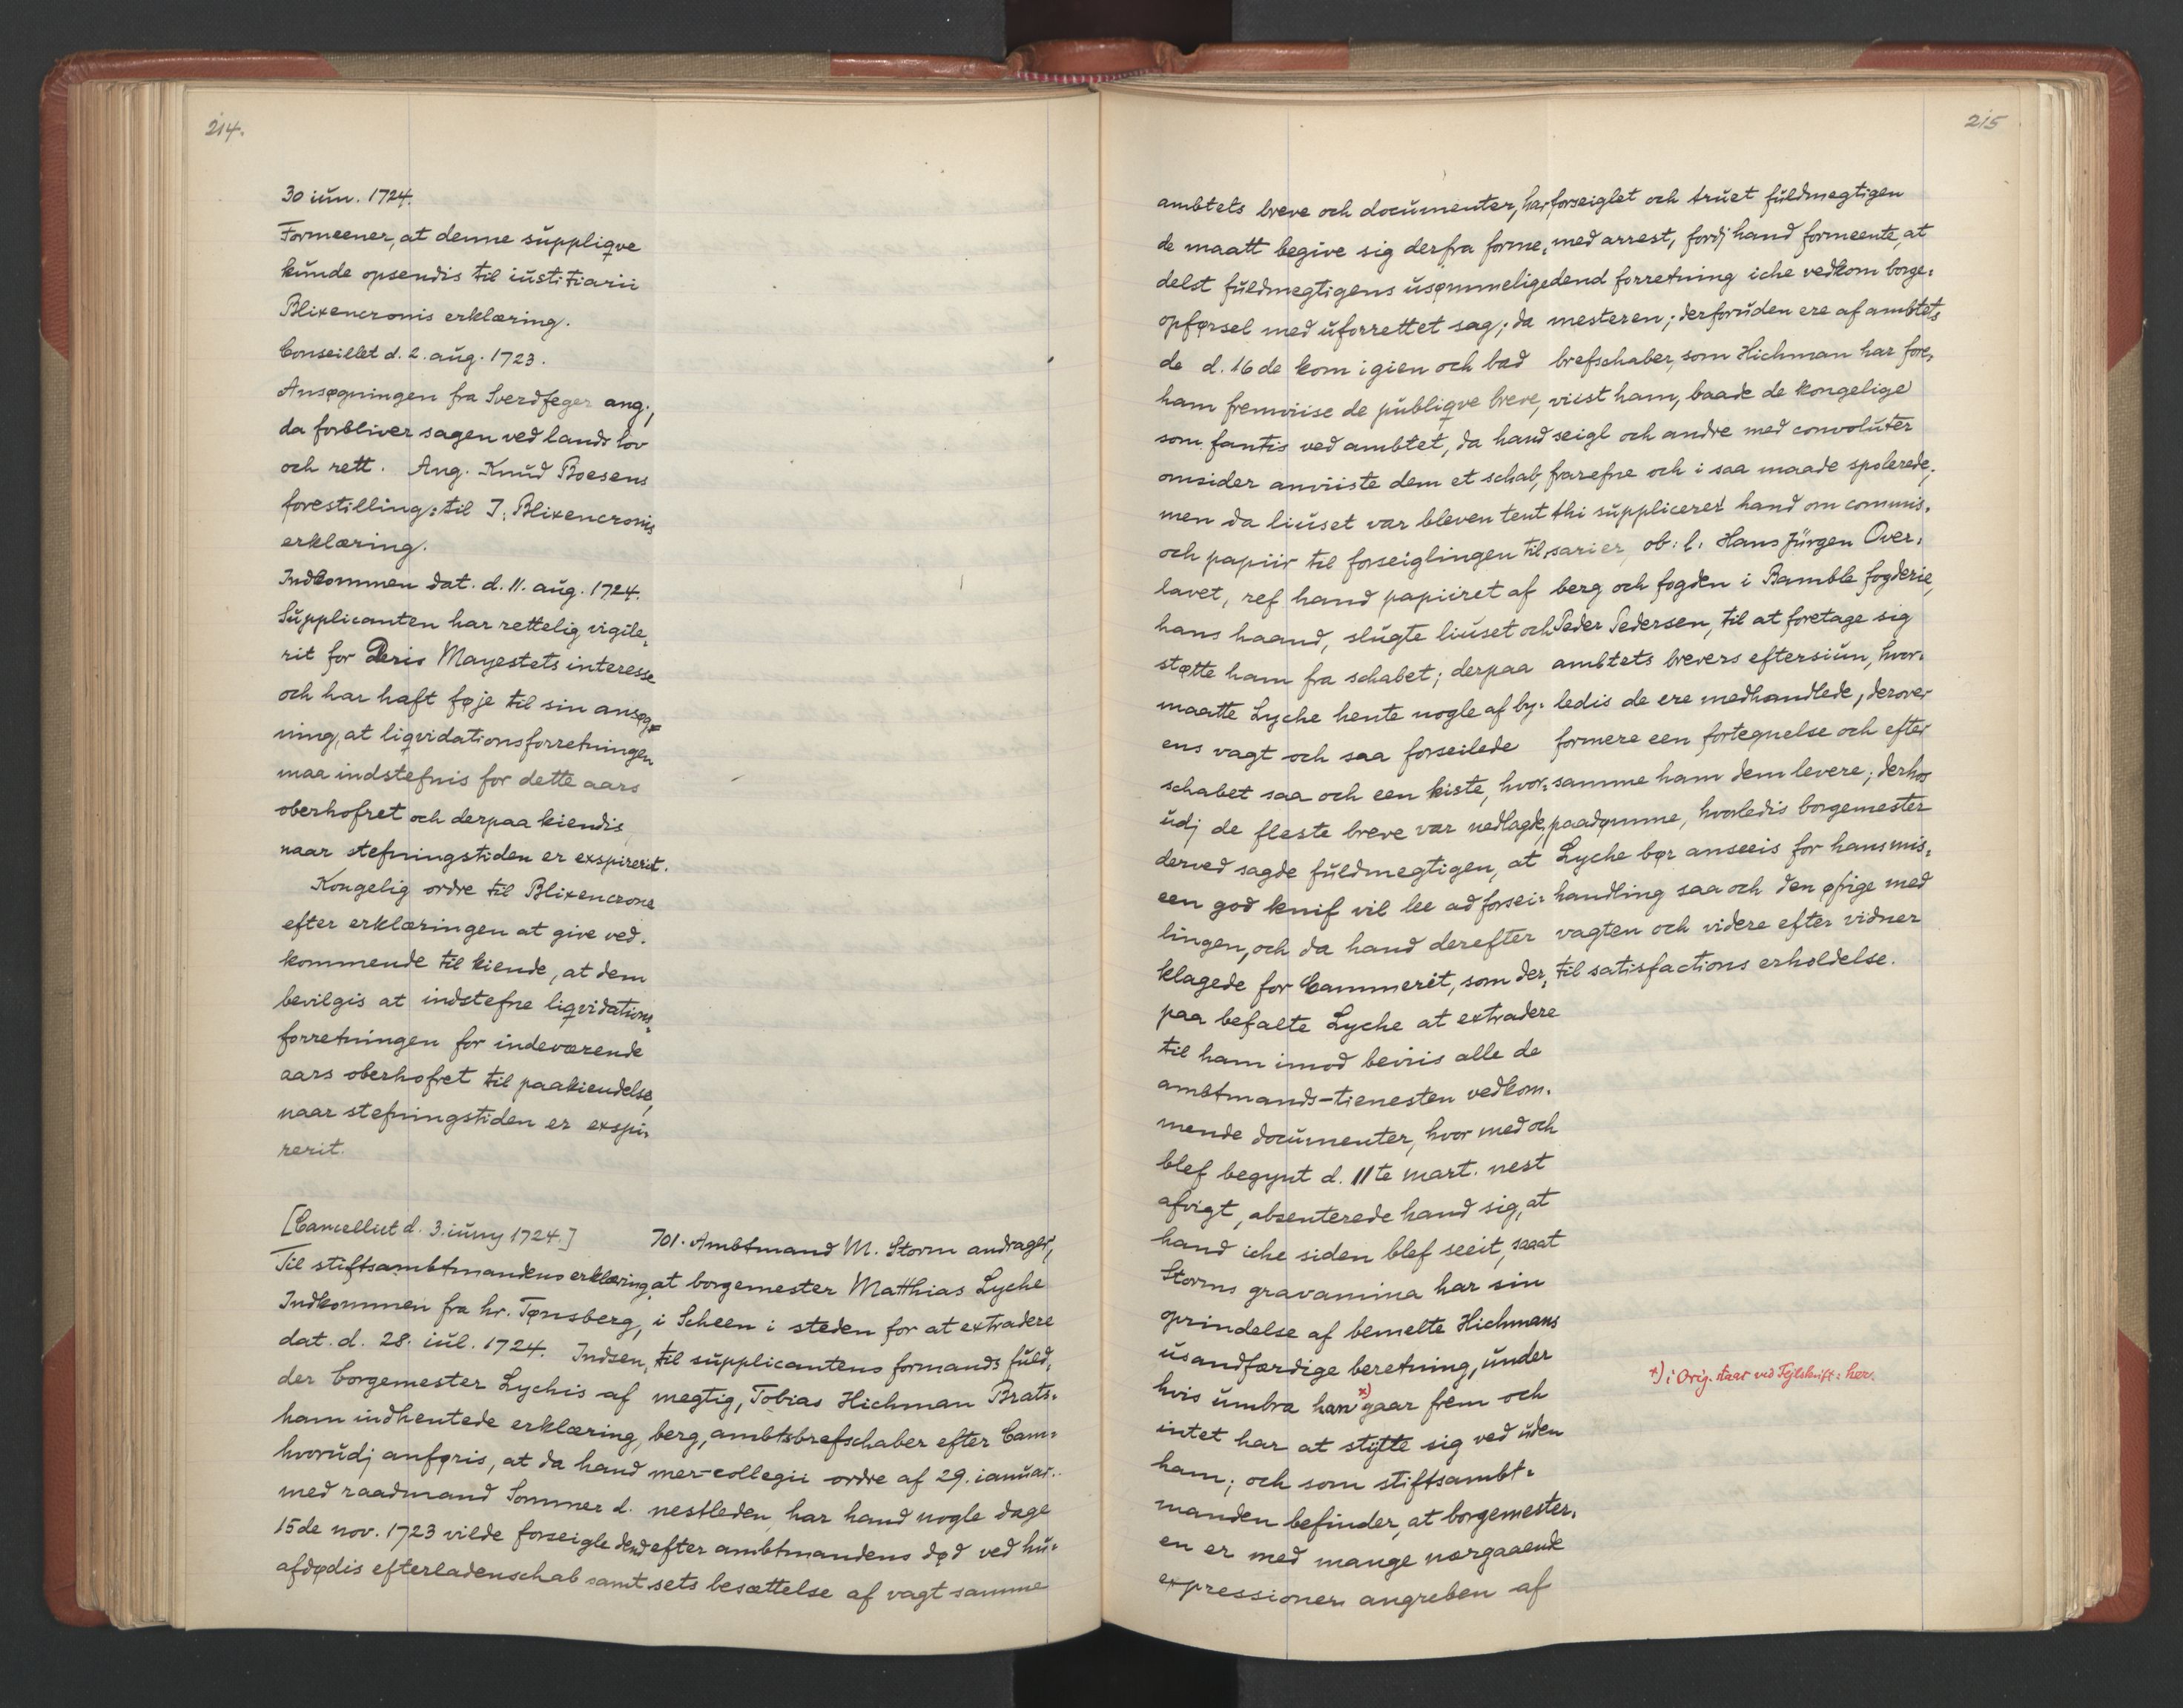 214.
30 iun. 1724.
Formeener, at denne suppliqve
kunde opsendis til iustitiarii
Blixencronis erklæring.
Conseillet d. 2. aug. 1723.
Ansøgningen fra Sverdfeger ang.,
da forbliver sagen ved lands lov
och rett. Ang. Knud Boesens
forestilling: til J. Blixencronis
erklæring.
Indkommen dat. d. 11. aug. 1724.
Supplicanten har rettelig vigile,
rit for Deris Mayestets interesse
och har haft føje til sin ansøg=
ning, at liqvidationsforretningen
maa indstefnis for dette aars
oberhofret och derpaa kiendis
naar stefningstiden er exspirerit.
Kongelig ordre til Blixencrone
efter erklæringen at give ved.
kommende til kiende, at dem
bevilgis at indstefne liqvidations,
forretningen for indeværende
aars oberhofret til paakiendelse,
naar stefningstiden er exspi,
rerit.
[Cancelliet d. 3. iuny 1724.]
Til stiftsambtmandens erklæring
Indkommen fra hr. Tønsberg,
dat. d. 28. iul. 1724. Indsen,
der borgemester Lychis af
ham indhentede erklæring,
hvorudj anføris, at da hand
med raadmand Sommer d.
15de nov. 1723 vilde forseigle dend
afdødis efterladenschab samt
701. Ambtmand M. Storm andrager,
at borgemester Matthias Lyche
i Scheen i steden for at extradere
til supplicantens formands fuld,
megtig, Tobias Hichman Brats=
berg, ambtsbrefschaber efter Cam=
mer-collegii ordre af 29. ianuar..
nestleden, har hand nogle dage
efter ambtmandens død ved hu=
sets besættelse af vagt samme
215
ambtets breve och documenter,
de maatt begive sig derfra forme,
delst fuldmegtigens usømmelige
opførsel med uforrettet sag; da
de d. 16de kom igien och bad
ham fremviise de publiqve breve,
som fantis ved ambtet, da hand
omsider anviiste dem et schab,
men da liuset var bleven tent
och papiir til forseiglingen til,
lavet, ref hand papiiret af
hans haand, slugte liuset och
støtte ham fra schabet; derpaa
maatte Lyche hente nogle af by=
ens vagt och saa forseilede
schabet saa och een kiste, hvor=
udj de fleste breve var nedlagde,
derved sagde fuldmegtigen, at
een god knif vil lee ad forsei=
lingen, och da hand derefter
klagede for Cammerit, som der,
paa befalte Lyche at extradere
til ham imod beviis alle de
ambtmands-tienesten vedkom.
mende documenter, hvor med och
blef begynt d. 11te mart. nest
afvigt, absenterede hand sig, at
hand iche siden blef seeit, saa at
Storms gravamina har sin
oprindelse af bemelte Hichmans
usandfærdige beretning, under
hvis umbra han x) gaar frem och
intet har at støtte sig ved uden
ham; och som stiftsambt=
manden befinder, at borgemester,
en er med mange nærgaaende
expressioner angreben af
har forseiglet och truet fuldmegtigen
med arrest, fordj hand formeente, at
dend forretning iche vedkom borge=
mesteren; derforuden ere af ambtets
brefschaber, som Hichman har fore,
viist ham, baade de kongelige
seigl och andre med convoluter
frarefne och i saa maade spolerede;
thi suppliceret hand om commis,
sarier, ob: l: Hans Jürgen Over,
berg och fogden i Bamble fogderie,
Peder Pedersen, til at foretage sig
ambtets brevers eftersiun, hvor=
ledis de ere medhandlede, derover
formere een fortegnelse och efter
samme ham dem levere; derhos
paadømme, hvorledis borgemester
Lyche bør anseeis for hans mis,
handling saa och den øfrige med
vagten och videre efter vidner
til satisfactions erholdelse.
x) i Orig. staar ved Fejlskrift: har.